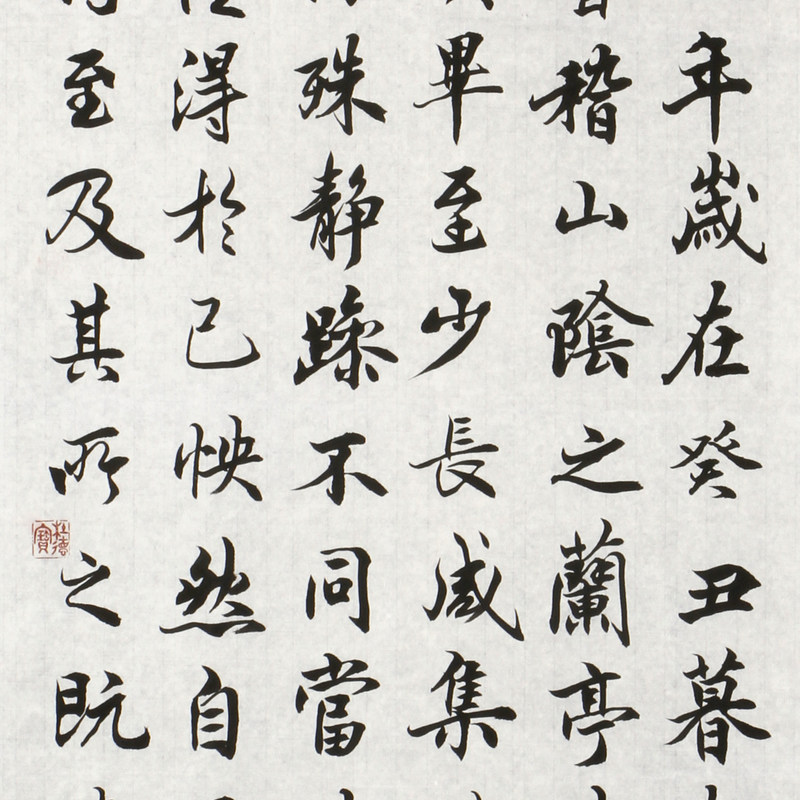 年歲在癸丑暮
稽山陰之蘭亭
畢至少長咸集
殊靜躁不同當
得於己怏然自
至及其所之既
杜德寶